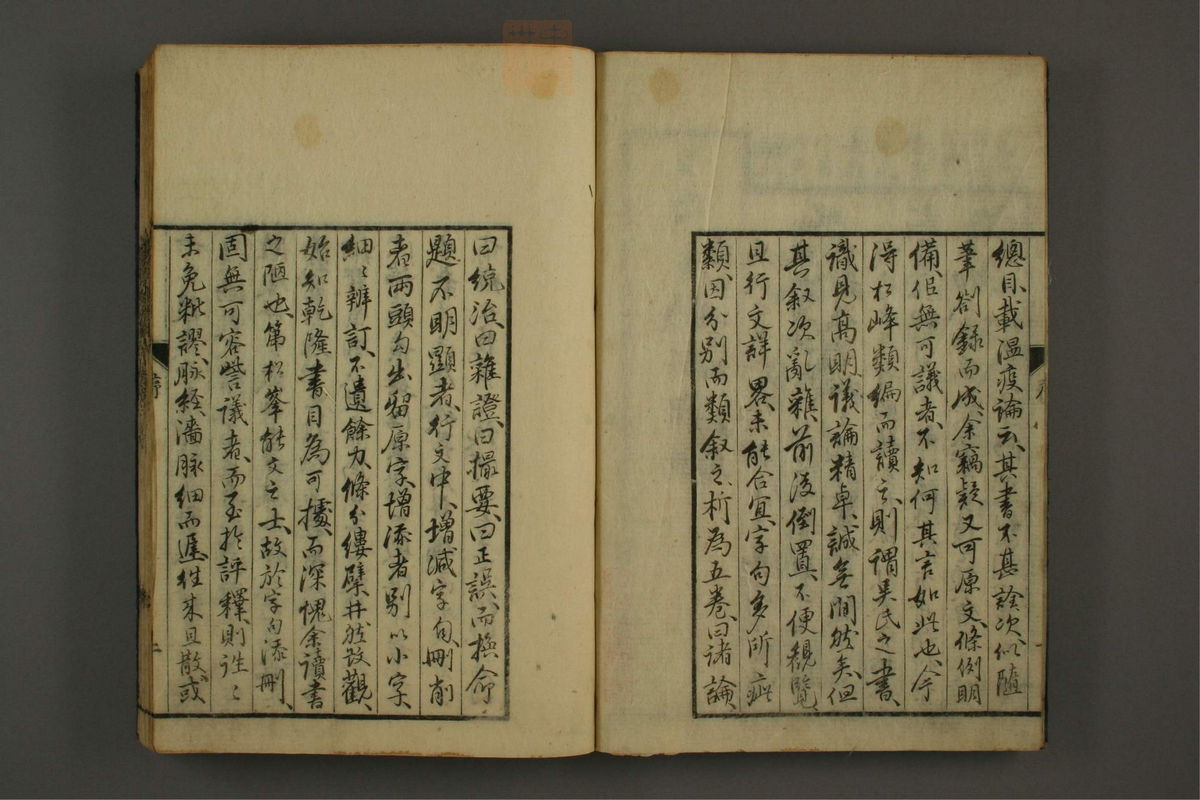 總目載溫疫論云其書不甚詮次似隨
筆劄錄而成余竊疑又可原文條例明
備似無可議者不知何其言如此也今
得松峰類編而讀之則謂吳氏之書
識見高明議論精卓誠無間然矣但
其叙次亂雜前後倒置不便觀覽
且行文詳畧未能合宜字句多所疵
類因分別而類叙之析為五卷曰諸論
曰統治曰雜證曰撮要曰正誤而撫命
題不明顯者行文中增減字句刪削
者兩頭勾出留原字增添者別以小字
細〻辨訂不遺餘力條分縷擘井然改觀
始知乾隆書目為可據而深愧余讀書
之陋也第松峯能文之士故於字句添刪
固無可容訾議者而至於評釋則往〻
未免紕謬脉經濇脉細而遲往來且散或
序
二